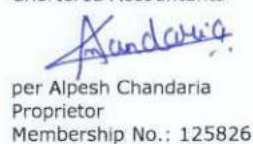 Chandaria
per Alpesh Chandaria
Proprietor
Membership No.: 125826